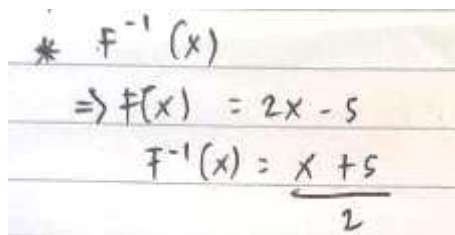 * F⁻¹ (x)
=> F(x) = 2x - 5
F⁻¹(x) = x + 5
2